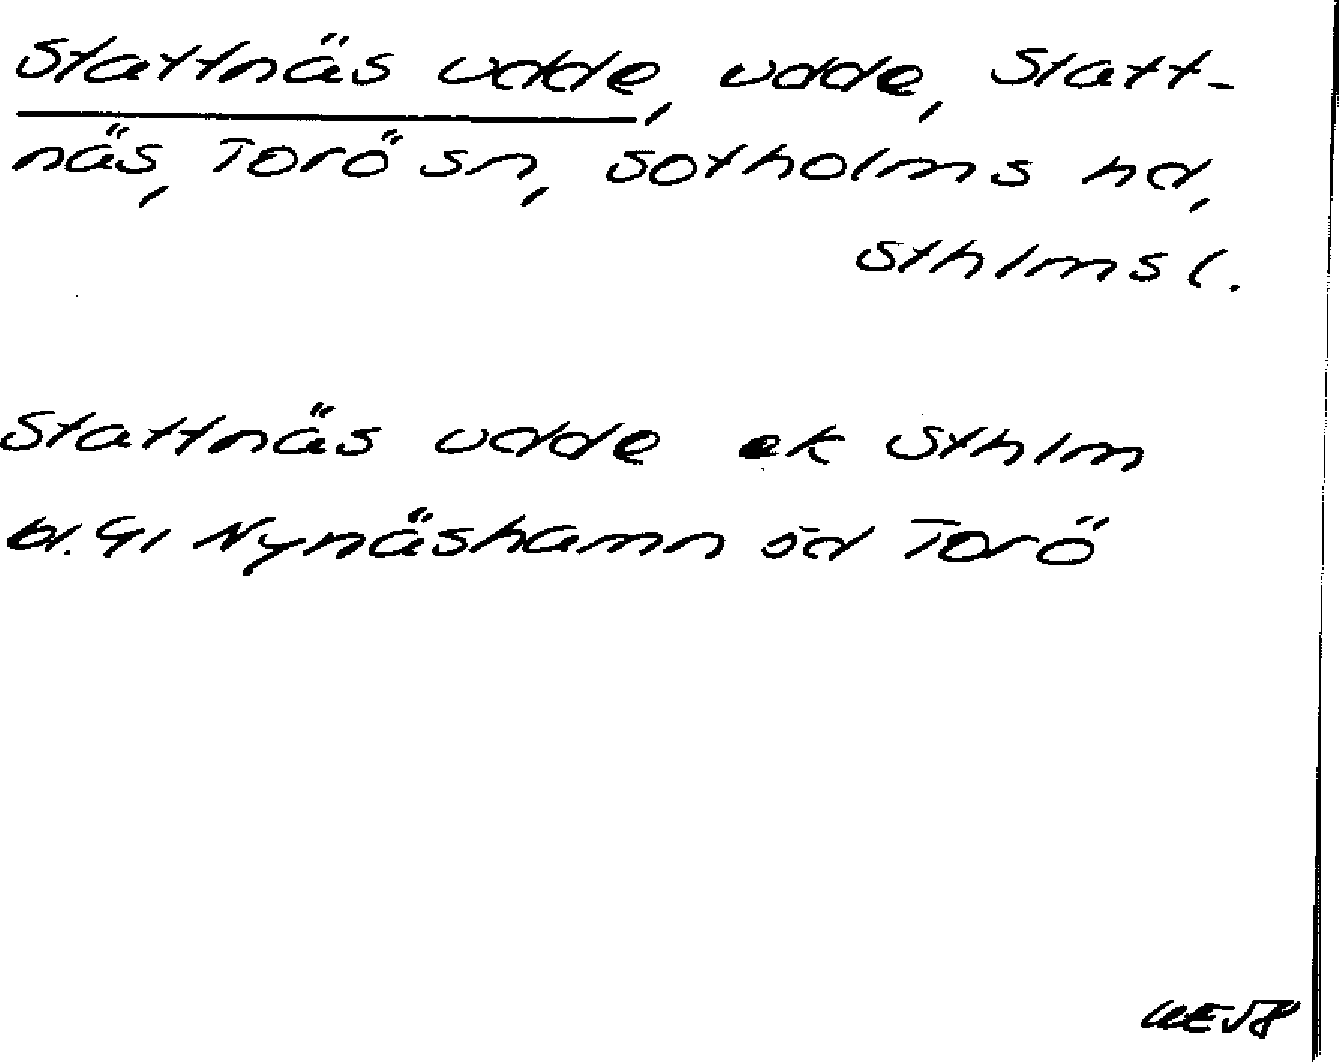 Stattnäs udde, udde, Statt-
näs, Torö sn, Sotholms hd,
Sthlms l.
Stattnäs udde ek Sthlm
bl. 91 Nynäshamn öd Torö